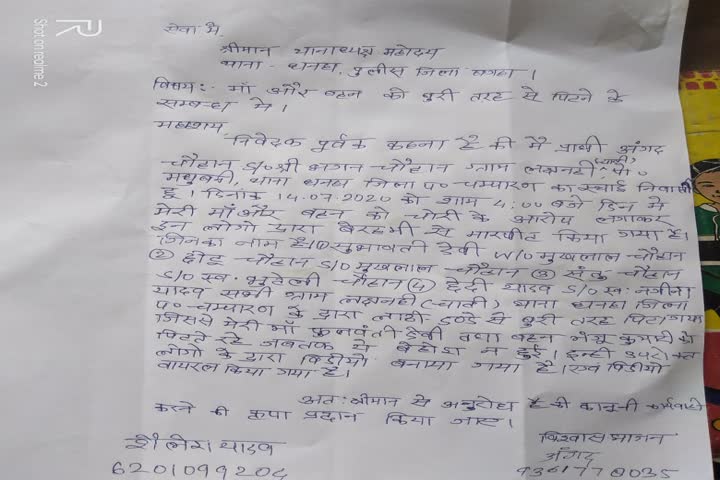 Shot on realme 2
सेवा में,
श्रीमान थानाध्यक्ष महोदय
थाना - धनहा, पुलीस जिला बगहा।
विषय:- माँ और बहन को बुरी तरह से पिटने के
सम्बन्ध में।
महाशय
निवेदक पूर्वक कहना है की मैं प्रार्थी अंगद
चौहान S/O श्री भगन चौहान ग्राम (चाकी) पो०
मधुबनी, थाना धनहा जिला प० चम्पारण का स्थाई निवासी
हूँ। दिनांक 14.07.2020 को शाम 4:00 बजे दिन में
मेरी माँ और बहन को चोरी के आरोप लगाकर
इन लोगों द्वारा बेरहमी से मारपीट किया गया है।
जिनका नाम है। ① सुभावती देवी W/O मुखलाल चौहान
② छोटू चौहान S/O मुखलाल चौहान ③ चौहान
S/O स्व. चौहान (4) यादव S/O स्व. नगीना
यादव सभी ग्राम (चाकी) थाना धनहा जिला
प० चम्पारण के द्वारा लाठी डण्डे से बुरी तरह पिटा गया
जिससे मेरी माँ फुलवंती देवी तथा बहन कुमारी को
पिटते रहे जबतक ये बेहोश न हुई। इन्ही
लोगो के द्वारा विडीयो बनाया गया है। एवं विडीयो
वायरल किया गया है।
अत: श्रीमान से अनुरोध है की कानुनी कार्यवाही
करने की कृपा प्रदान किया जाए।
शैलेश यादव
6201099204
विश्वास भाजन
अंगद